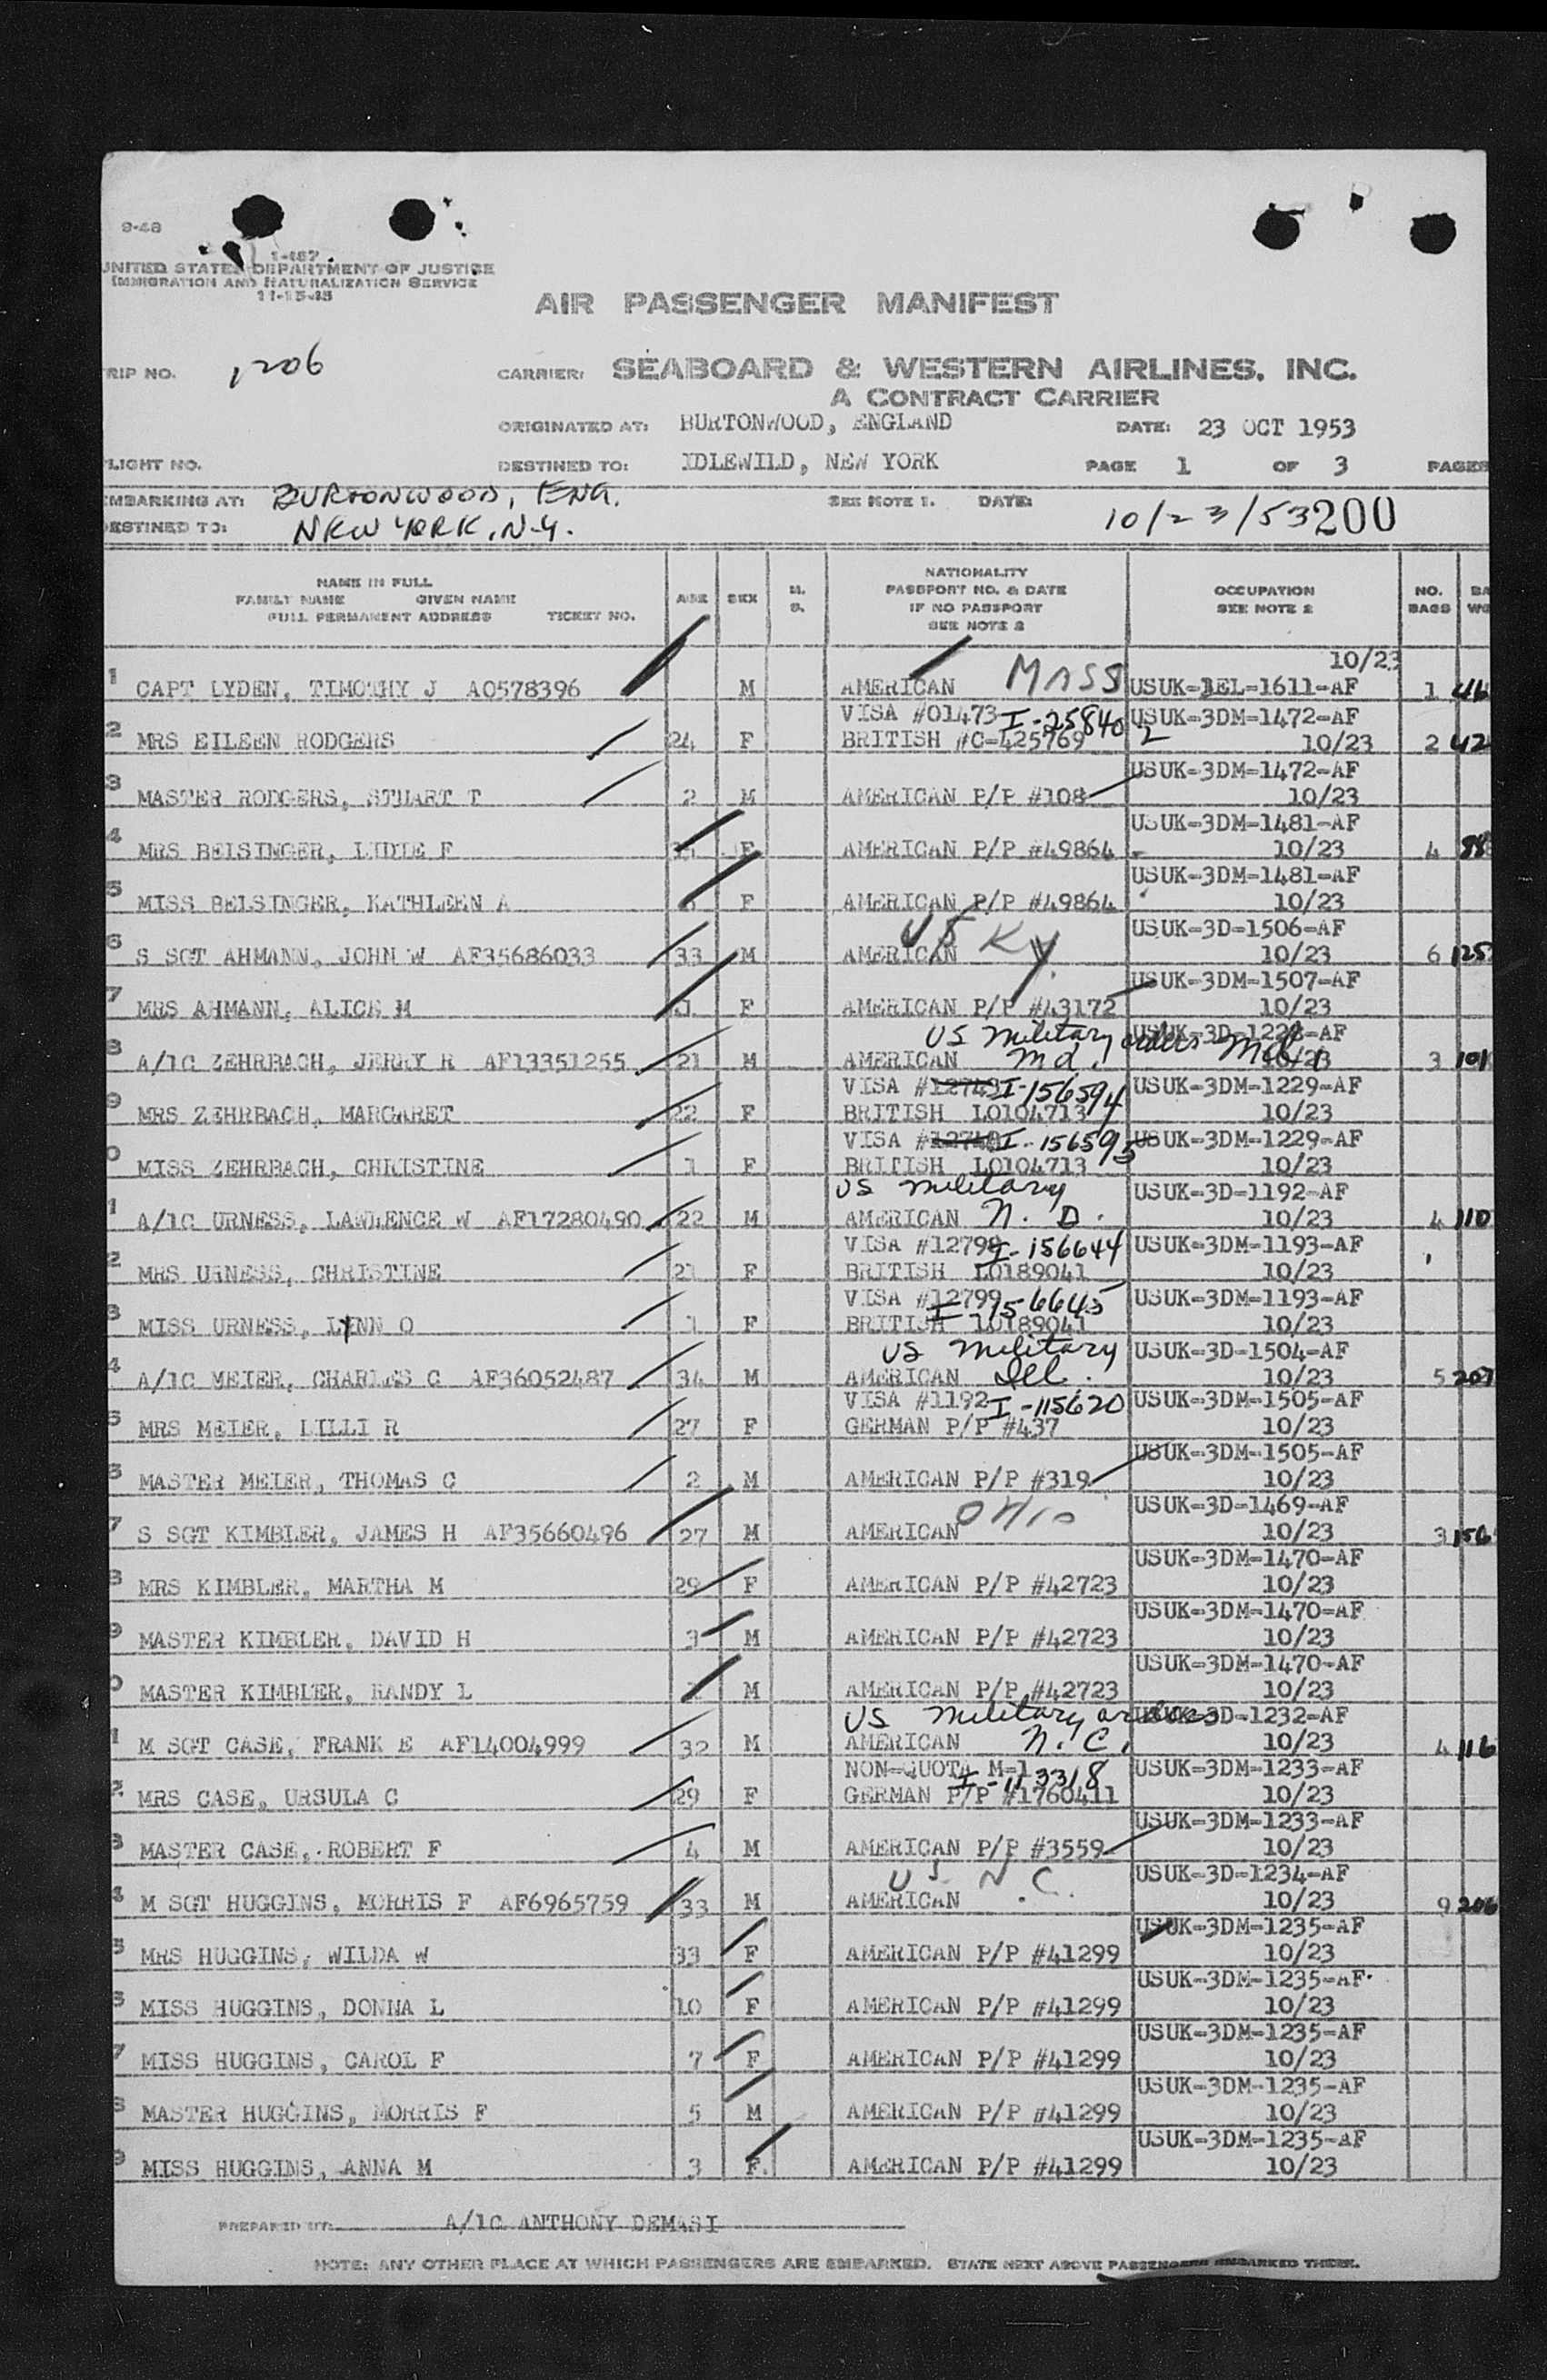 9-48
1-467
UNITED STATES DEPARTMENT OF JUSTICE
IMMIGRATION AND NATURALIZATION SERVICE
11-15-48
AIR PASSENGER MANIFEST
RIP NO. 1206
CARRIER: SEABOARD & WESTERN AIRLINES, INC.
A CONTRACT CARRIER
ORIGINATED AT: BURTONWOOD, ENGLAND DATE: 23 OCT 1953
LIGHT NO. DESTINED TO: IDLEWILD, NEW YORK PAGE 1 OF 3 PAGES
EMBARKING AT: BURTONWOOD, ENG. SEE NOTE 1. DATE: 10/23/53 200
DESTINED TO: NEW YORK, N.Y.
NAME IN FULL
FAMILY NAME GIVEN NAME
FULL PERMANENT ADDRESS TICKET NO. AGE SEX M. S. NATIONALITY PASSPORT NO. & DATE IF NO PASSPORT SEE NOTE 2 OCCUPATION SEE NOTE 2 NO. BAGS BA WG
MASS 10/23
1 CAPT LYDEN, TIMOTHY J AO578396 M AMERICAN USUK-3EL-1611-AF 1 46
VISA #01473 I-258402 USUK-3DM-1472-AF
2 MRS EILEEN RODGERS 24 F BRITISH #C-425769 10/23 2 42
USUK-3DM-1472-AF
3 MASTER RODGERS, STUART T 2 M AMERICAN P/P #108 10/23
USUK-3DM-1481-AF
4 MRS BELSINGER, F F AMERICAN P/P #49864 10/23 4 98
USUK-3DM-1481-AF
5 MISS BELSINGER, KATHLEEN A F AMERICAN P/P #49864 10/23
US KY. USUK-3D-1506-AF
6 S SGT AHMANN, JOHN W AF35686033 33 M AMERICAN 10/23 6 125
USUK-3DM-1507-AF
7 MRS AHMANN, ALICE M F AMERICAN P/P #43172 10/23
US Military orders Md. USUK-3D-1228-AF
8 A/1C ZEHRBACH, JERRY R AF13351255 21 M AMERICAN Md. 10/23 3 101
VISA #12748 I-156594 USUK-3DM-1229-AF
9 MRS ZEHRBACH, MARGARET 22 F BRITISH L0104713 10/23
VISA #12749 I-156595 USUK-3DM-1229-AF
0 MISS ZEHRBACH, CHRISTINE 1 F BRITISH L0104713 10/23
US Military USUK-3D-1192-AF
1 A/1C URNESS, LAWLENCE W AF17280490 22 M AMERICAN N. D. 10/23 4 110
VISA #12798 I-156644 USUK-3DM-1193-AF
2 MRS URNESS, CHRISTINE 21 F BRITISH L0189041 10/23
VISA #12799 I-156645 USUK-3DM-1193-AF
3 MISS URNESS, LYNN O 1 F BRITISH L0189041 10/23
US Military USUK-3D-1504-AF
4 A/1C MEIER, CHARLES C AF36052487 34 M AMERICAN Ill. 10/23 5 207
VISA #1192 I-115620 USUK-3DM-1505-AF
5 MRS MEIER, LILLI R 27 F GERMAN P/P #437 10/23
USUK-3DM-1505-AF
6 MASTER MEIER, THOMAS C 2 M AMERICAN P/P #319 10/23
OHIO USUK-3D-1469-AF
7 S SGT KIMBLER, JAMES H AF35660496 27 M AMERICAN 10/23 3 156
USUK-3DM-1470-AF
8 MRS KIMBLER, MARTHA M 29 F AMERICAN P/P #42723 10/23
USUK-3DM-1470-AF
9 MASTER KIMBLER, DAVID H 3 M AMERICAN P/P #42723 10/23
USUK-3DM-1470-AF
0 MASTER KIMBLER, RANDY L M AMERICAN P/P #42723 10/23
US Military orders USUK-3D-1232-AF
1 M SGT CASE, FRANK E AF14004999 32 M AMERICAN N. C. 10/23 4 116
NON-QUOTA M-1 I-113318 USUK-3DM-1233-AF
2 MRS CASE, URSULA C 29 F GERMAN P/P #1760411 10/23
USUK-3DM-1233-AF
3 MASTER CASE, ROBERT F 4 M AMERICAN P/P #3559 10/23
US. N.C. USUK-3D-1234-AF
4 M SGT HUGGINS, MORRIS F AF6965759 33 M AMERICAN 10/23 9 206
USUK-3DM-1235-AF
5 MRS HUGGINS, WILDA W 33 F AMERICAN P/P #41299 10/23
USUK-3DM-1235-AF
6 MISS HUGGINS, DONNA L 10 F AMERICAN P/P #41299 10/23
USUK-3DM-1235-AF
7 MISS HUGGINS, CAROL F 7 F AMERICAN P/P #41299 10/23
USUK-3DM-1235-AF
8 MASTER HUGGINS, MORRIS F 5 M AMERICAN P/P #41299 10/23
USUK-3DM-1235-AF
9 MISS HUGGINS, ANNA M 3 F. AMERICAN P/P #41299 10/23
PREPARED BY: A/1C ANTHONY DEMASI
NOTE: ANY OTHER PLACE AT WHICH PASSENGERS ARE EMBARKED. STATE NEXT ABOVE PASSENGERS EMBARKED THERE.